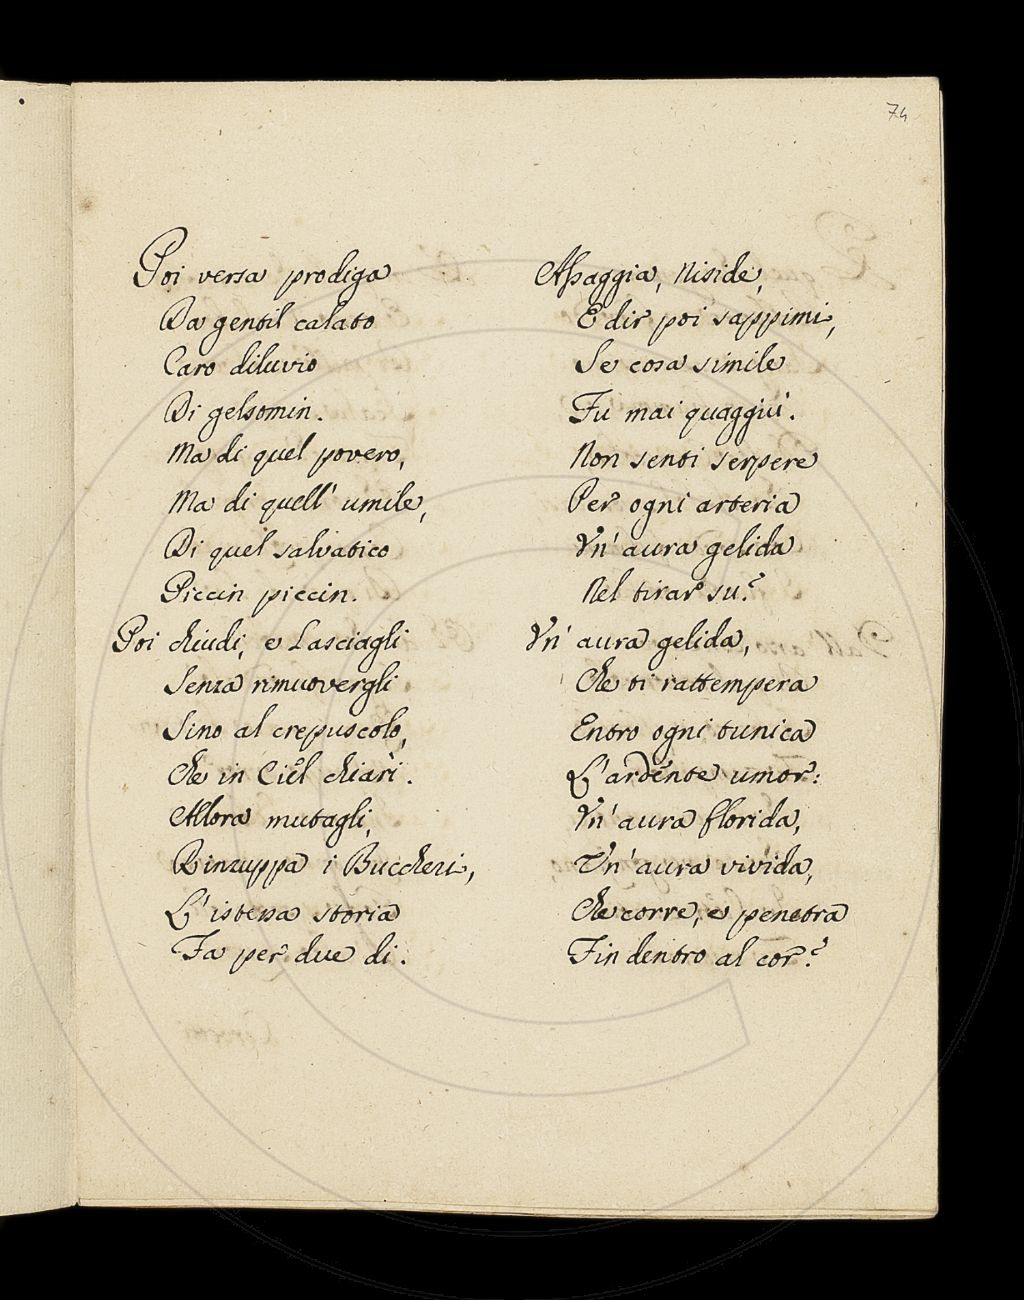 74
Poi versa prodiga
Da gentil calato
Caro diluvio
Di gelsomin.
Ma di quel povero,
Ma di quell' umile,
Di quel salvatico
Piccin piccin.
Poi chiudi, e Lasciagli
Senza rimuovergli
Sino al crepuscolo,
Che in Ciel chiarì.
Allora mutagli,
Rinzuppa i Buccheri,
L'istessa storia
Fa per due dì.
Assaggia, Niside,
E dir poi sappimi,
Se cosa simile
Fu mai quaggiù.
Non senti serpere
Per ogni arteria
Vn' aura gelida
Nel tirar su?
Vn' aura gelida,
Che ti rattempera
Entro ogni tunica
L'ardente umor:
Vn' aura florida,
Vn' aura vivida,
Che corre, e penetra
Fin dentro al cor?